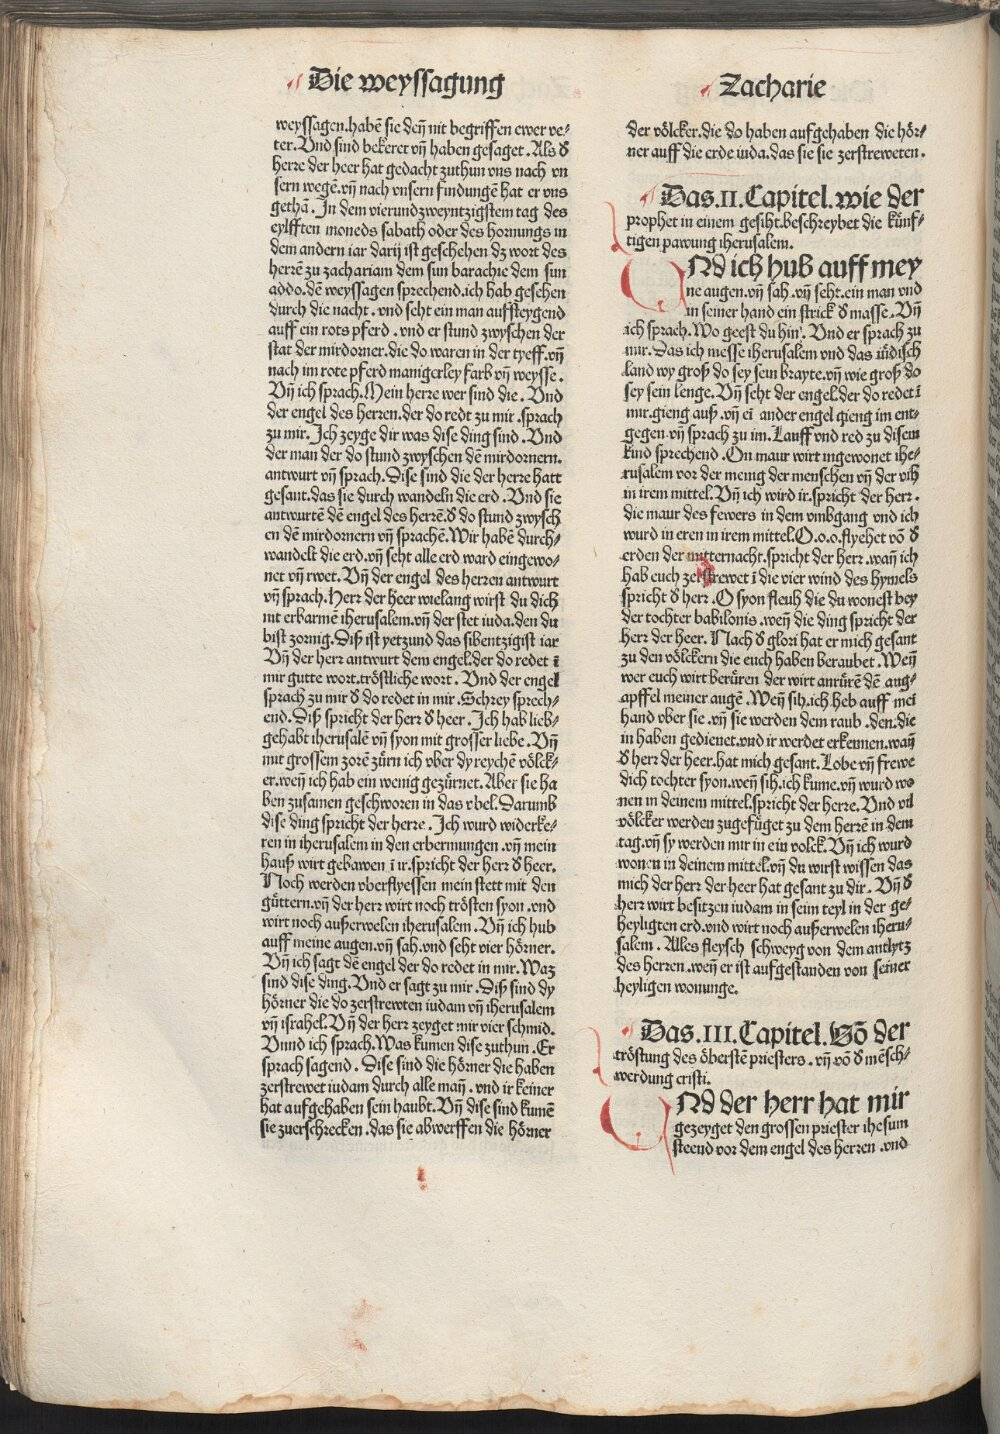 Die weyssagung
weyssagen.habē sie deñ nit begriffen ewer ve⸗
ter.Vnd sind bekeret vñ haben gesaget.Als ď
herre der heer hat gedacht zuthun vns nach vn
sern wegē.vñ nach vnsern fundungē hat er vns
gethā.In dem vierundzweyntzigstem tag des
eylfften moneds sabath oder des hornungs in
dem andern iar darij ist geschehen dz wort des
herrē zu zachariam dem sun barachie dem sun
addo.dē weyssagen sprechend.ich hab gesehen
durch die nacht.vnd seht ein man auffsteygend
auff ein rots pferd.vnd er stund zwyschen der
stat der mirdorner.die do waren in der tyeff.vñ
nach im rote pferd manigerley farb vñ weysse.
Vñ ich sprach.Mein herre wer sind die.Vnd
der engel des herren.der do redt zu mir.sprach
zu mir.Ich zeyge dir was dise ding sind.Vnd
der man der do stund zwyschen dē mirdornern.
antwurt vñ sprach.Dise sind die der herre hatt
gesant.das sie durch wandeln die erd.Vnd sie
antwurtē dē engel des herrē.ď do stund zwysch
en dē mirdornern vñ sprachē.Wir habē durch⸗
wandelt die erd.vñ seht alle erd ward eingewo⸗
net vñ rwet.Vñ der engel des herren antwurt
vñ sprach.Herr der heer wielang wirst du dich
nit erbarmē iherusalem.vñ der stet iuda.den du
bist zornig.Diß ist yetzund das sibentzigist iar
Vñ der herr antwurt dem engel.der do redet ī
mir gutte wort.tröstliche wort.Vnd der engel
sprach zu mir ď do redet in mir.Schrey sprech⸗
end.Diß spricht der herr ď heer.Ich hab lieb⸗
gehabt iherusalē vñ syon mit grosser liebe.Vñ
mit grossem zorē zürn ich vber dy reychē völck⸗
er.weñ ich hab ein wenig gezürnet.Aber sie ha
ben zusamen geschworen in das vbel.Darumb
dise ding spricht der herre.Ich wurd widerke⸗
ren in iherusalem in den erbermungen.vñ mein
hauß wirt gebawen ī ir.spricht der herr ď heer.
Noch werden vberflyessen mein stett mit den
güttern.vñ der herr wirt noch trösten syon.vnd
wirt noch außerwelen iherusalem.Vñ ich hub
auff meine augen.vñ sah.vnd seht vier hörner.
Vñ ich sagt dē engel der do redet in mir.Waz
sind dise ding.Vnd er sagt zu mir.Diß sind dy
hörner die do zerstrewten iudam vñ iherusalem
vñ israhel.Vñ der herr zeyget mir vier schmid.
Vnnd ich sprach.Was kumen dise zuthun.Er
sprach sagend.Dise sind die hörner die haben
zerstrewet iudam durch alle mañ.vnd ir keiner
hat aufgehaben sein haubt.Vñ dise sind kumē
sie zuerschrecken.das sie abwerffen die hörner
Zacharie
der völcker.die do haben aufgehaben die hör⸗
ner auff die erde iuda.das sie sie zerstreweten.
Das.II.Capitel.wie der
prophet in einem gesiht.beschreybet die künf⸗
tigen pawung iherusalem.
ND ich hub auff mey
ne augen.vñ sah.vñ seht.ein man vnd
in seiner hand ein strick ď masse.Vñ
ich sprach.Wo geest du hin.Vnd er sprach zu
mir.Das ich messe iherusalem vnd das iüdisch
land wy groß do sey sein brayte.vñ wie groß do
sey sein lenge.Vñ seht der engel.der do redet ī
mir.gieng auß.vñ eī ander engel gieng im ent⸗
gegen.vñ sprach zu im.Lauff vnd red zu disem
kind sprechend.On maur wirt ingewonet ihe⸗
rusalem vor der menig der menschen vñ der vih
in irem mittel.Vñ ich wird ir.spricht der herr.
die maur des fewers in dem vmbgang vnd ich
wurd in eren in irem mittel.O.o.o.flyehet vō ď
erden der mitternacht.spricht der herr.wañ ich
hab euch zerstrewet ī die vier wind des hymels
spricht ď herr.O syon fleuh die du wonest bey
der tochter babilonis.weñ die ding spricht der
herr der heer.Nach ď glori hat er mich gesant
zu den völckern die euch haben beraubet.Weñ
wer euch wirt berüren der wirt anrürē dē aug⸗
apffel meiner augē.Weñ sih.ich heb auff mei
hand vber sie.vñ sie werden dem raub.den.die
in haben gedienet.vnd ir werdet erkennen.wañ
ď herr der heer.hat mich gesant.Lobe vñ frewe
dich tochter syon.weñ sih.ich kume.vñ wurd wo
nen in deinem mittel.spricht der herre.Vnd vil
völcker werden zugefüget zu dem herrē in dem
tag.vñ sy werden mir in ein volck.Vñ ich wurd
wonen in deinem mittel.vñ du wirst wissen das
mich der herr der heer hat gesant zu dir.Vñ ď
herr wirt besitzen iudam in sein teyl in der ge⸗
heyligten erd.vnd wirt noch außerwelen iheru⸗
salem.Alles fleysch schweyg von dem antlytz
des herren.weñ er ist aufgestanden von seiner
heyligen wonunge.
Das.III.Capitel.Võ der
tröstung des öberstē priesters.vñ vō ď mēsch⸗
werdung cristi.
ND der herr hat mir
gezeyget den grossen priester ihesum
steend vor dem engel des herren.vnd